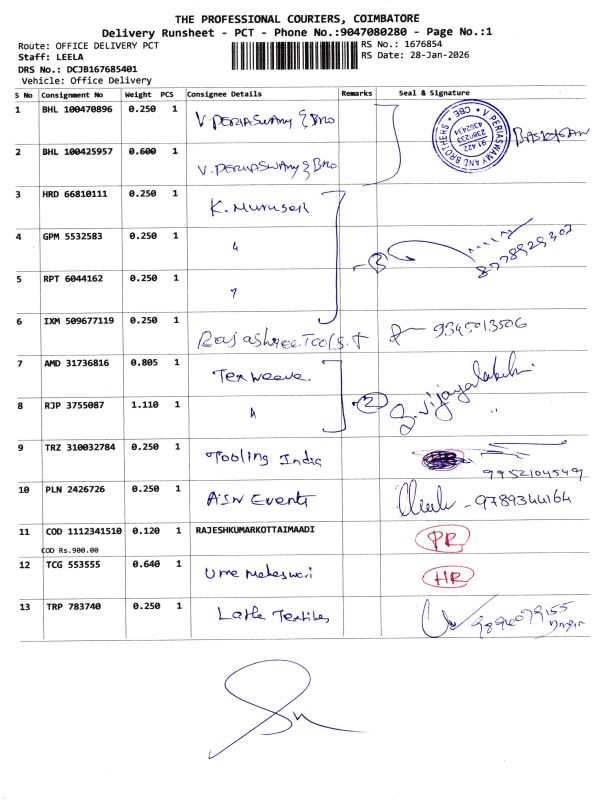 THE PROFESSIONAL COURIERS, COIMBATORE
Delivery Runsheet - PCT - Phone No.:9047080280 - Page No.:1
Route: OFFICE DELIVERY PCT
RS No.: 1676854
Staff: LEELA
RS Date: 28-Jan-2026
DRS No.: DCJB167685401
Vehicle: Office Delivery
S No Consignment No Weight PCS Consignee Details Remarks Seal & Signature
1 BHL 100470896 0.250 1 V. PERIASWAMY & BRO
V. PERIASWAMY AND BROTHERS * CBE *
2 BHL 100425957 0.600 1 V. PERIASWAMY & BRO
3 HRD 66810111 0.250 1 K. Murugesh
4 GPM 5532583 0.250 1 "
3
5 RPT 6044162 0.250 1 "
6 IXM 509677119 0.250 1 Rajashree Tools 9345013506
7 AMD 31736816 0.805 1 Texweave.
2 S. Vijayalakshmi
8 RJP 3755087 1.110 1 "
9 TRZ 310032784 0.250 1 Tooling India
9952104549
10 PLN 2426726 0.250 1 AISW Events - 9789344164
11 COD 1112341510 0.120 1 RAJESHKUMARKOTTAIMAADI PR
COD Rs.900.00
12 TCG 553555 0.640 1 Uma Maheswari HR
13 TRP 783740 0.250 1 Latle Textiles